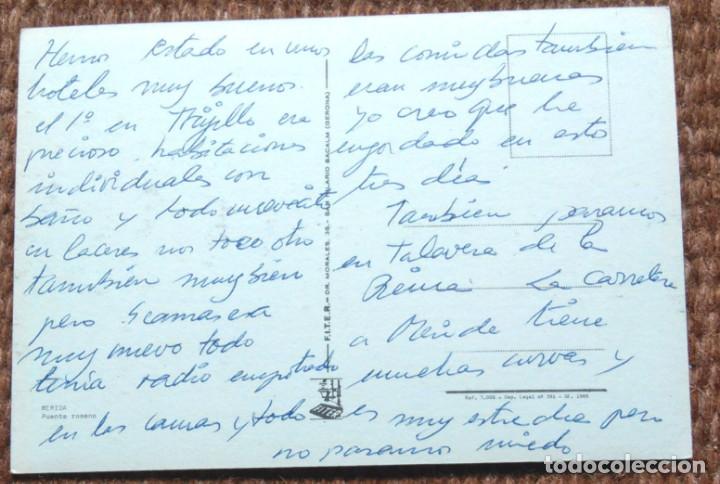 Hemos estado en unos
hoteles muy buenos.
el 1º en Trujillo era
precioso habitaciones
individuales con
baño y todo
en Caceres nos toco otro
tambien muy bien
pero 
muy nuevo todo
tenia radio empotrado
en las camas y todo
las comidas tambien
eran muy buenas
yo creo que he
engordado en esto
tres dias
Tambien paramos
en Talavera de la
Reina. La carretera
a tiene
muchas curvas y
es muy estrecha pero
no pasamos miedo
F.I.T.E.R. - DR. MORALES, 36 - SAN HILARIO SACALM (GERONA)
MERIDA
Puente romano
Dep. Legal nº
todocoleccion
todocoleccion.net